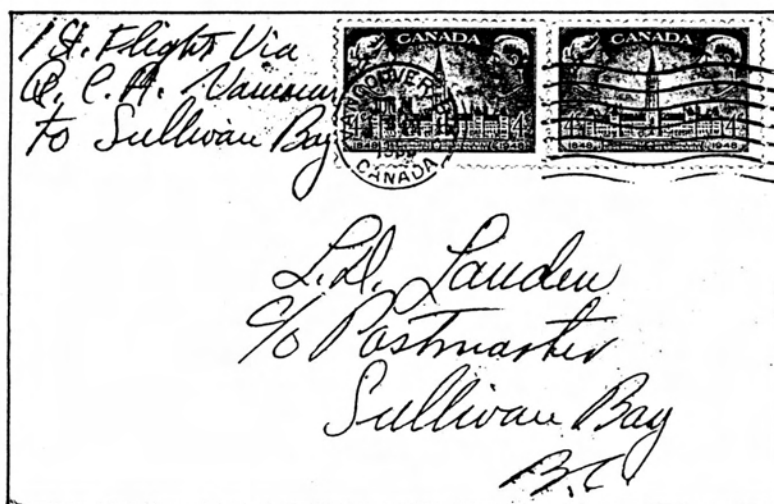 1 St. Flight Via
Q. C. A. Vancouver
to Sullivan Bay
CANADA
4 4
1848 1948
CANADA
4 4
1848 1948
VANCOUVER
CANADA
L.D. Lauden
c/o Postmaster
Sullivan Bay
B.C.